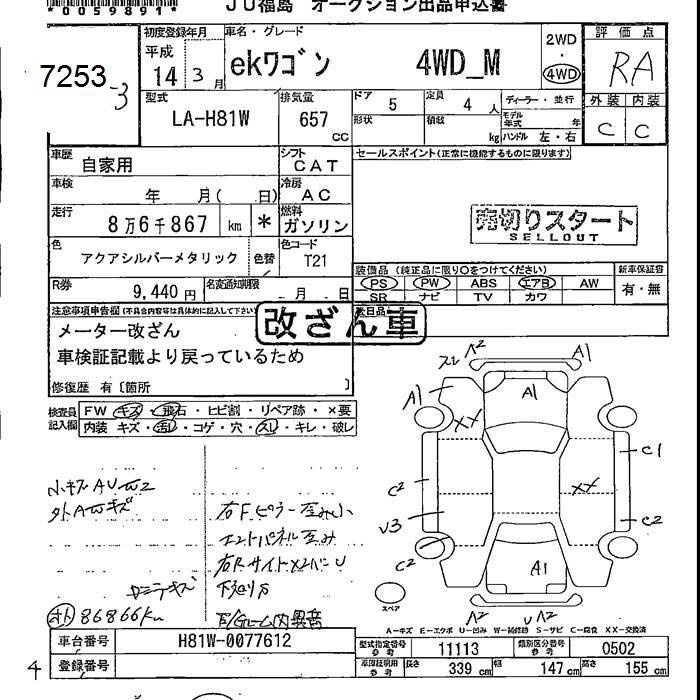 *0059891*
JU福島 オークション出品申込書
7253
3
初度登録年月
平成
14 3 月
車名・グレード
ekワゴン 4WD_M
2WD
・
4WD
評価点
RA
型式
LA-H81W
排気量
657
cc
ドア 5
形状
定員 4 人
積載 kg
ディーラー・並行
モデル年式 年
ハンドル 左・右
外装 内装
C C
車歴
自家用
シフト
CAT
セールスポイント(正常に機能するものに限ります)
車検
年 月( 日)
冷房
AC
走行
8万6千867 km *
燃料
ガソリン
売切りスタート
SELLOUT
色
アクアシルバーメタリック
色替
色コード
T21
装備品(純正品に限り○をつけてください)
PS PW ABS エアB AW
SR ナビ TV カワ
新車保証書
有・無
R券
9,440円
名変通知期限
月 日
注意事項申告欄(不具合内容等は具体的に記入して下さい)
改ざん車
メーター改ざん
車検証記載より戻っているため
修復歴 有〔箇所 〕
検査員
記入欄
FW キズ・飛石・ヒビ割・リペア跡・×要
内装 キズ・汚レ・コゲ・穴・スレ・キレ・破レ
A2 A1
A1 A1
XX
C1
C2 XX
V3 C2
C2
A1
A2 A2
スペア
小キズAUW2
外AWキズ
右Fピラー歪み小
エンドパネル歪み
下廻りサ
オト 86866Km
A-キズ E-エクボ U-凹み W-補修跡 S-サビ C-腐食 XX-交換済
車台番号 H81W-0077612
型式指定番号 参考 11113
類別区分番号 参考 0502
4
登録番号
車庫証明用 参考
長さ 339 cm
幅 147 cm
高さ 155 cm